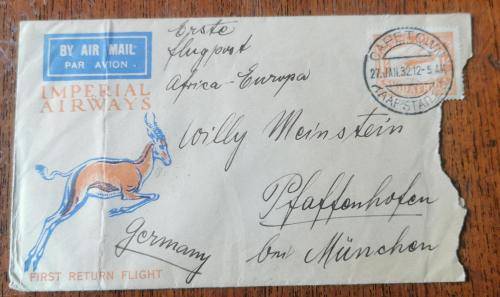 BY AIR MAIL
PAR AVION
IMPERIAL
AIRWAYS
Erste
flugpost
Africa-Europa
CAPE TOWN
27.JAN.32.12-5 AM
KAAPSTAD
Willy Meinstein
Pfaffenhofen
bei München
Germany
FIRST RETURN FLIGHT